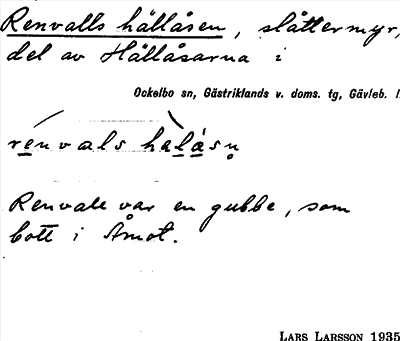 Renvalls hällåsen, slåttermyr,
del av Hällåsarna i
Ockelbo sn, Gästriklands v. doms. tg, Gävleb. l
renvals halåsn
Renvall var en gubbe, som
bott i Åmot.
LARS LARSSON 1935